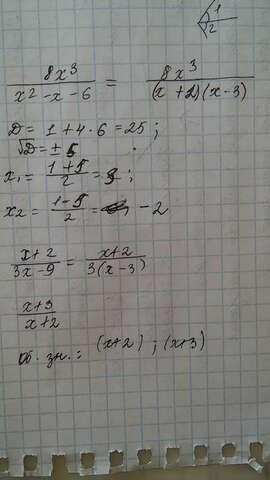 1
2
8x³/(x² - x - 6) = 8x³/((x + 2)(x - 3))
D = 1 + 4 · 6 = 25 ;
√D = ± 5
x₁ = (1 + 5)/2 = 3 ;
x₂ = (1 - 5)/2 = - 2
(x + 2)/(3x - 9) = (x + 2)/(3(x - 3))
(x + 3)/(x + 2)
об. зн. : (x + 2) ; (x + 3)